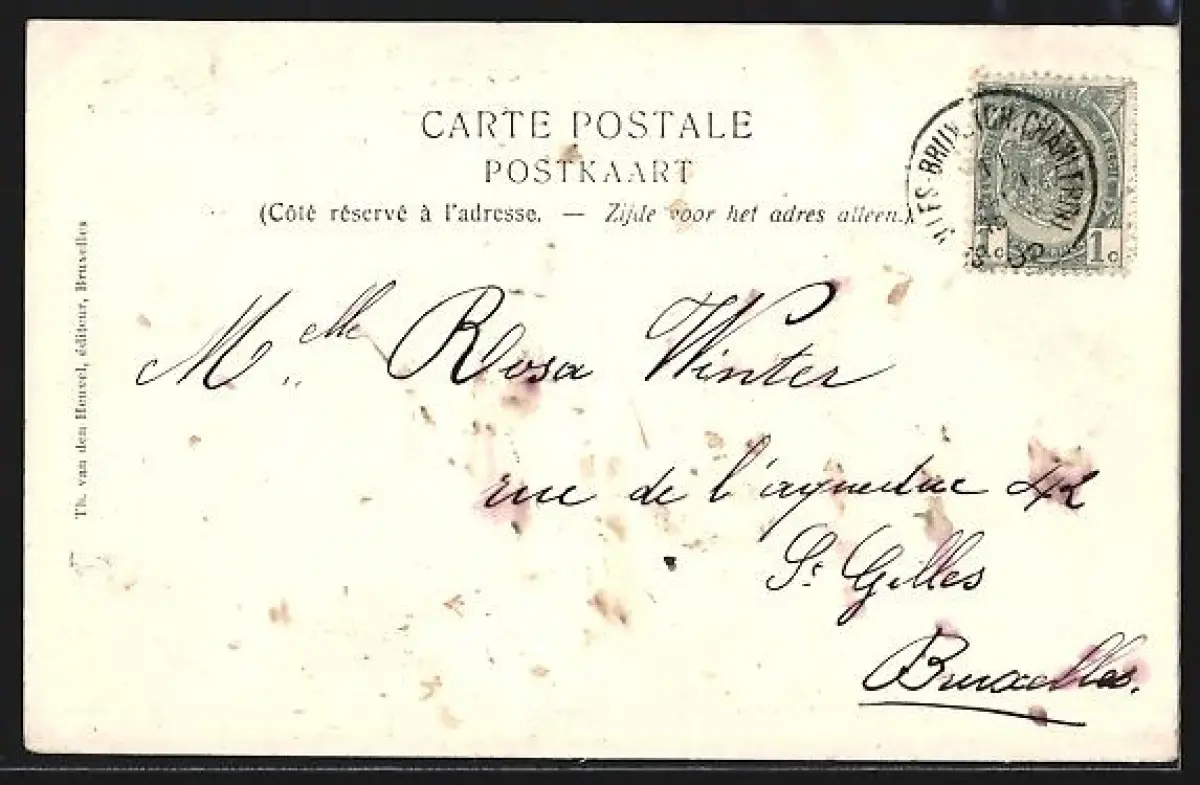 CARTE POSTALE
POSTKAART
(Côté réservé à l'adresse. — Zijde voor het adres alleen.)
1c 1c
Th. van den Heuvel, éditeur, Bruxelles
Mlle Rosa Winter
rue de l'aqueduc 42
St Gilles
Bruxelles.